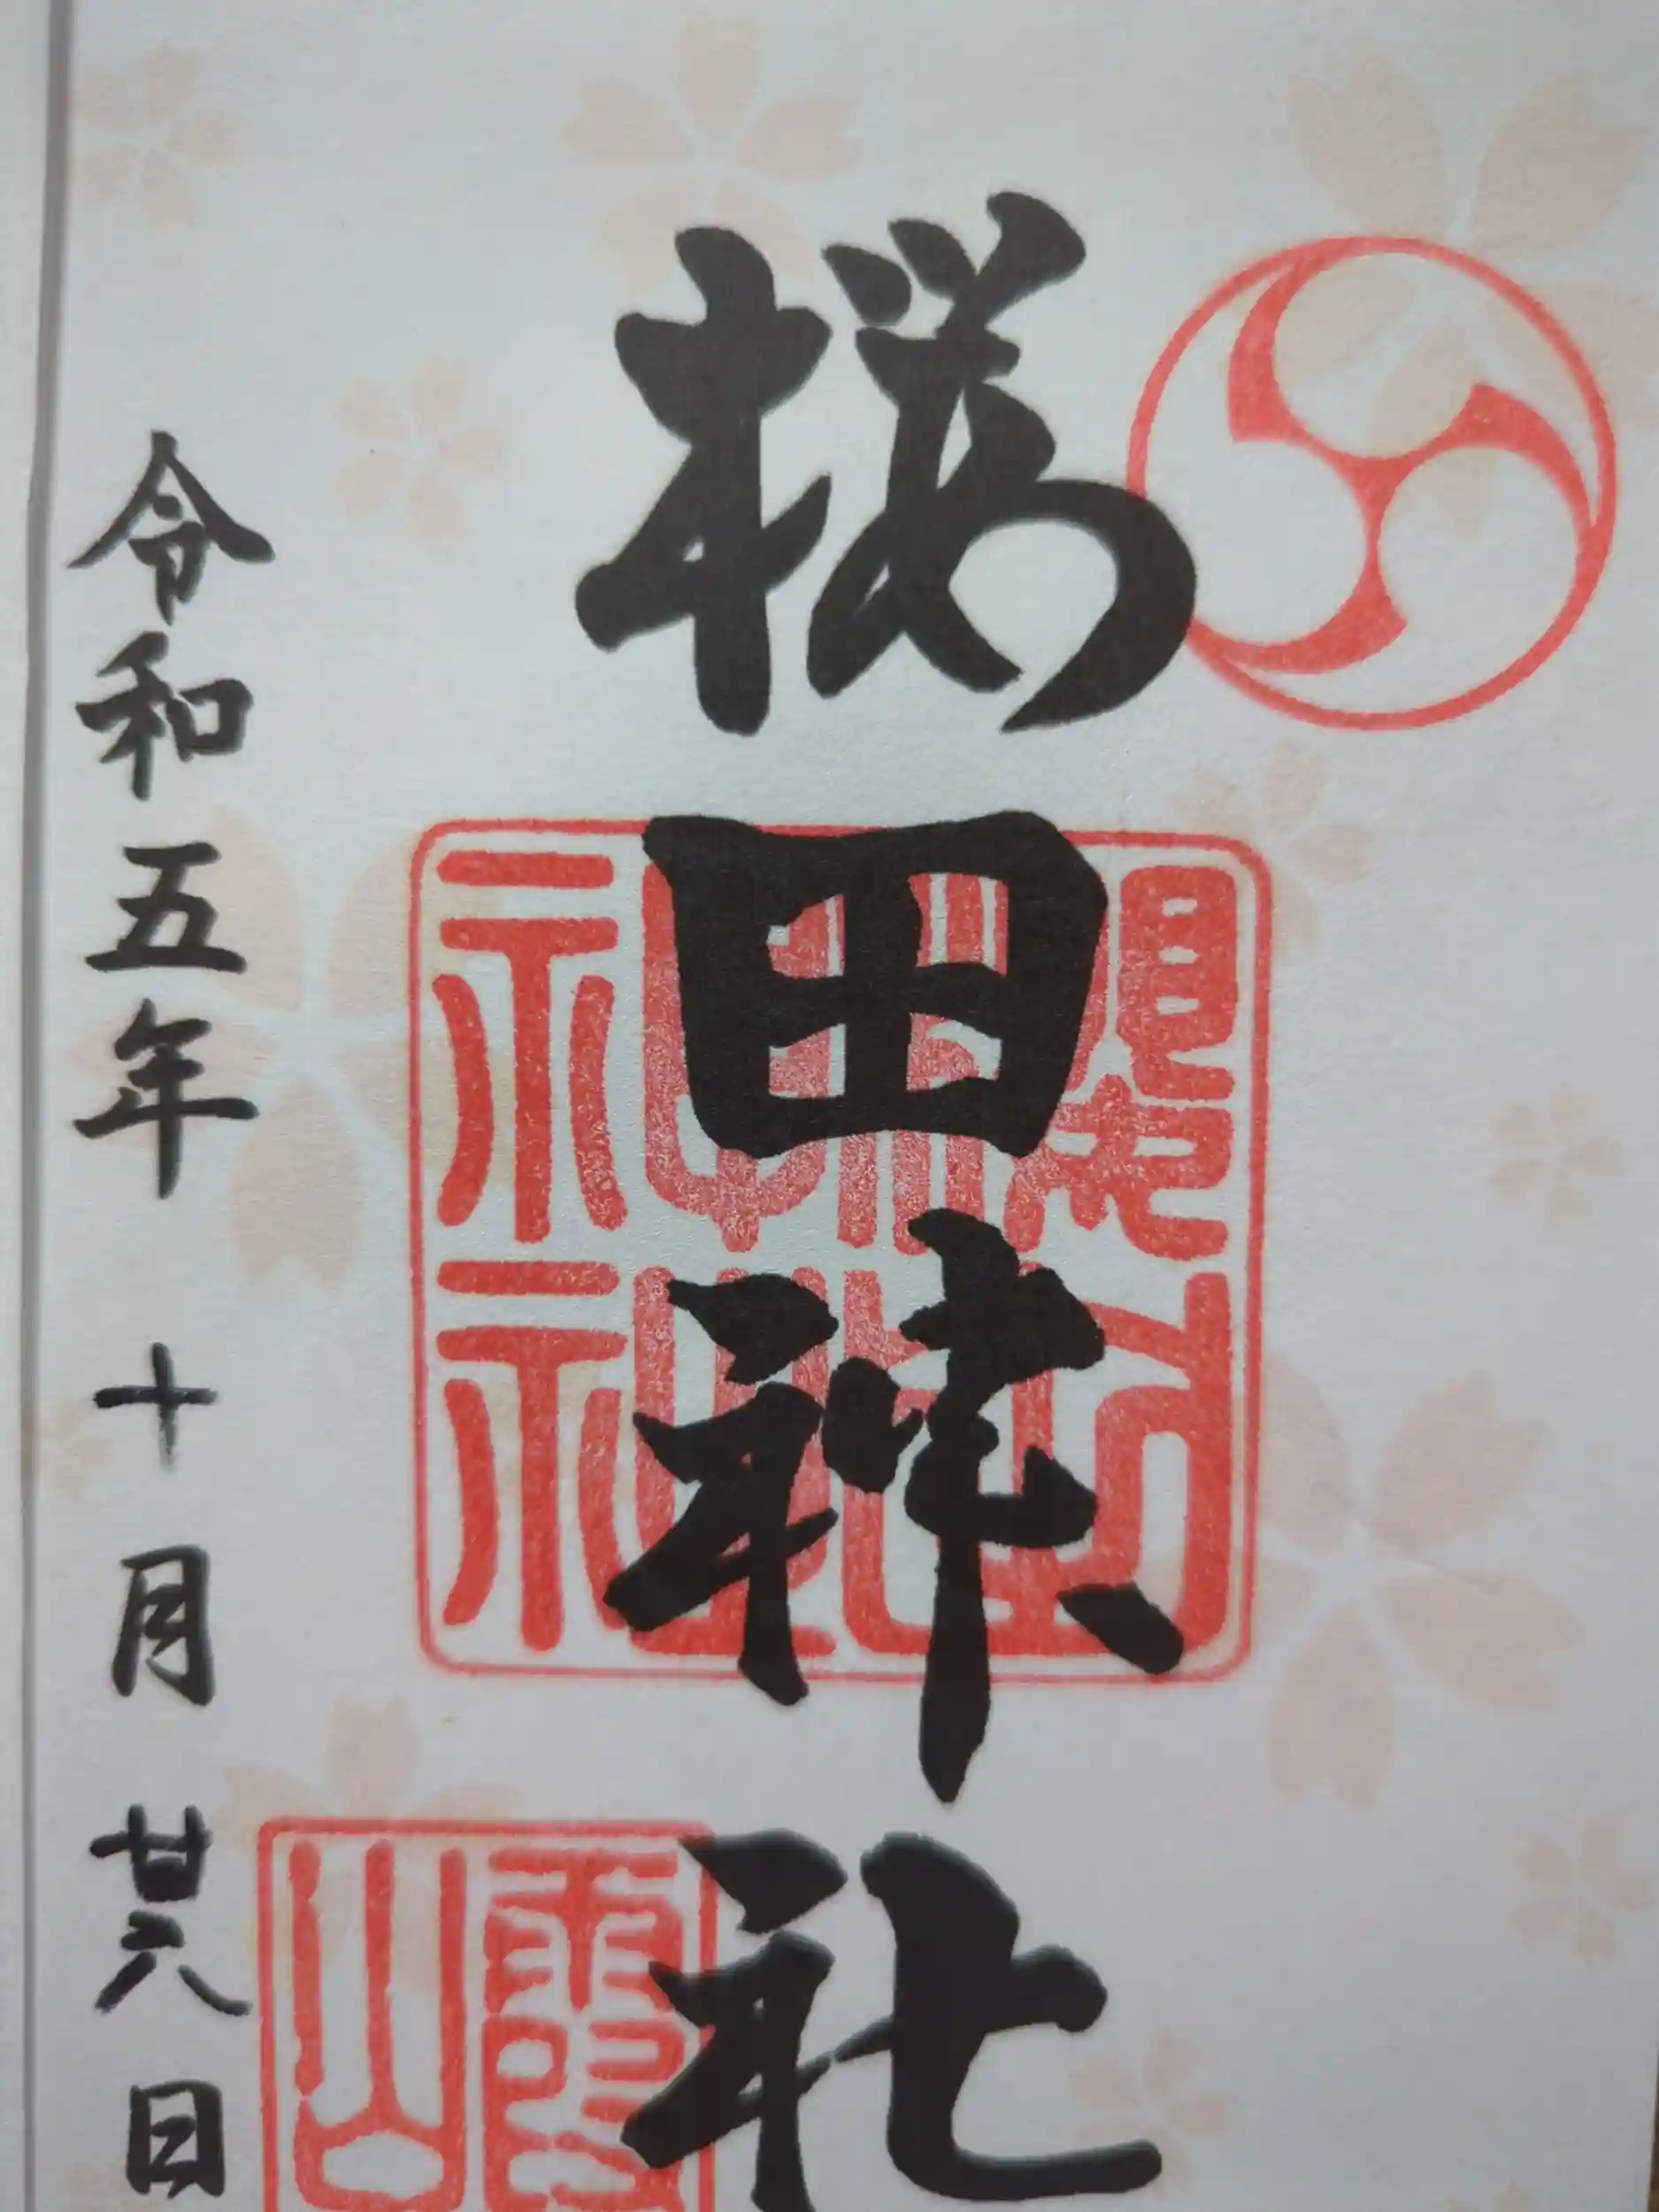 桜田神社
令和五年 十月 廿六日
霞山
桜田神社